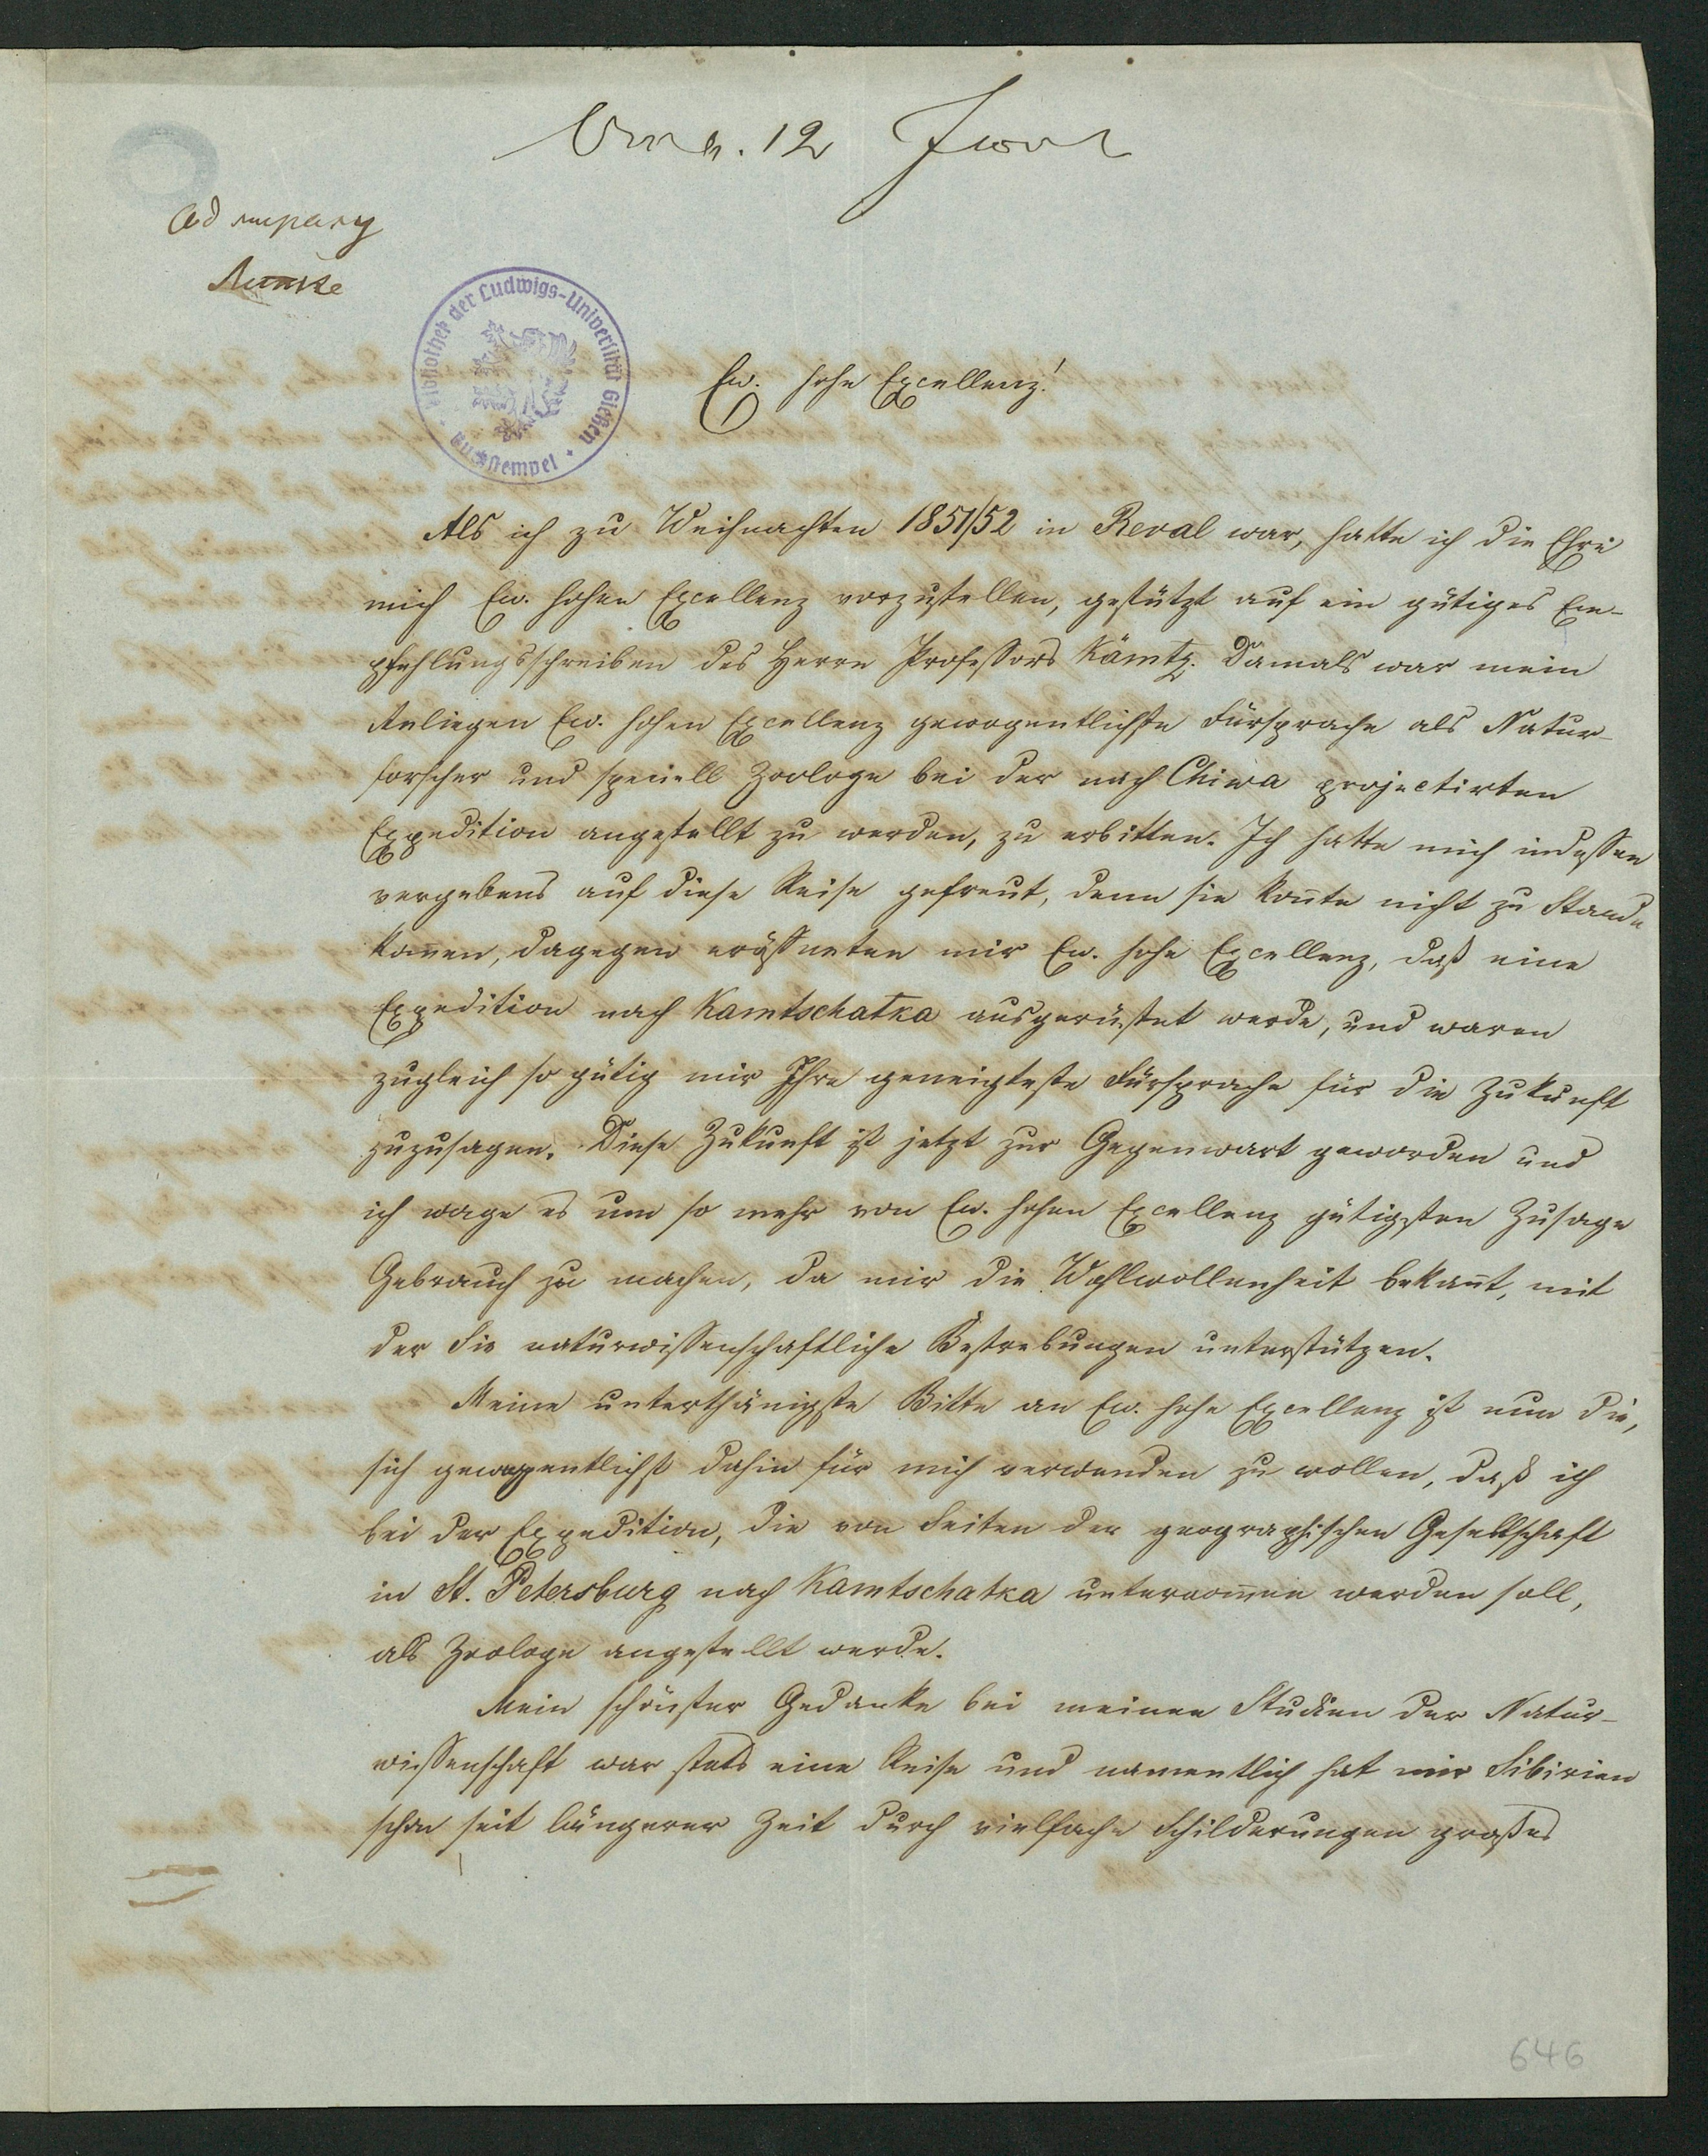 12
Bibliothek der Ludwigs-Universität Gießen
Ew. hohe Excellenz!
Als ich zu Weihnachten 1851/52 in Reval war, hatte ich die Ehre
mich Ew. hohen Excellenz vorzustellen, gestützt auf ein gütiges Em-
pfehlungsschreiben des Herrn Professors Kämtz. Damals war mein
Anliegen Ew. hohen Excellenz gewogentlichste Fürsprache als Natur-
forscher und speciell Zoologe bei der nach Chiwa projectirten
Expedition angestellt zu werden, zu erbitten. Ich hatte mich indessen
vergebens auf diese Reise gefreut, denn sie konnte nicht zu Stande
kommen, dagegen eröffneten mir Ew. hohe Excellenz, daß eine
Expedition nach Kamtschatka ausgerüstet werde, und waren
zugleich so gütig mir Ihre geneigteste Fürsprache für die Zukunft
zuzusagen. Diese Zukunft ist jetzt zur Gegenwart geworden und
ich wage es um so mehr von Ew. hohen Excellenz gütigsten Zusage
Gebrauch zu machen, da mir die Wohlwollenheit bekannt, mit
der Sie naturwissenschaftliche Bestrebungen unterstützen.
Meine unterthänigste Bitte an Ew. hohe Excellenz ist nun die,
sich gewogentlichst dahin für mich verwenden zu wollen, daß ich
bei der Expedition, die von Seiten der geographischen Gesellschaft
in St. Petersburg nach Kamtschatka unternommen werden soll,
als Zoologe angestellt werde.
Mein schönster Gedanke bei meinen Studien der Natur-
wissenschaft war stets eine Reise und namentlich hat mir Sibirien
schon seit längerer Zeit durch vielfache Schilderungen großes
646